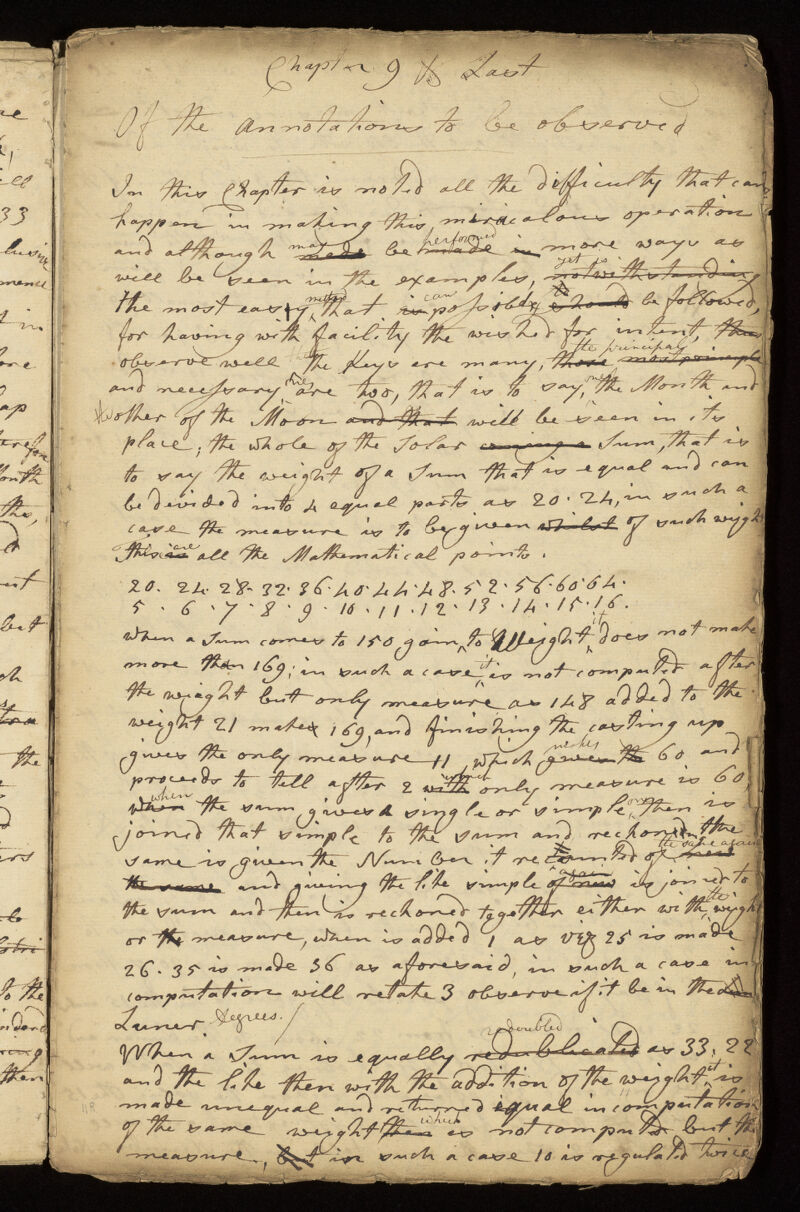 Chapter 9 & Last
Of the annotations to be observed
In this Chapter is noted all the difficulty that can
happen in making this miraculous operation
and although may made be performed made in more ways as
will be seen in the examples, yet is notwithstanding
the most easy method that is can possibly should be followed,
for having with facility the wished for intent, thus
observe well the Keys are many, the principals those most principle
and necessary one are two, that is to say, one the Month and
two other of the Moon and that will be seen in its
place; the whole of the Solar coming a Sum, that is
to say the weight of a Sum that is equal and can
be divided into 4 equal parts as 20. 24, in such a
case the measure is to be given whilst of such weight
This is are all the Mathematical points.
20. 24. 28. 32. 36. 40. 44. 48. 52. 56. 60. 64.
5 . 6 . 7 . 8 . 9 . 10 . 11 . 12 . 13 . 14 . 15 . 16 .
when a Sum comes to 150 to Weight it does not make
more than 169; in such a case it is not computed after
the weight but only measure as 148 added to the
weight 21 makes 169, and finishing the casting up
gives the only measure 11, which makes gives the 60 and
proceeds to tell after 2 which with only measure is 60,
when when the sum gives a single or simple one then is
joined that simple to the sum and reckoned the
same is given the Number it recounted of new the same again
the same and giving the like simple again of new is joined to
the sum and then is reckoned together either with the weight
or the measure, when is added 1 as viz 25 is made
26. 35 is made 36 as aforesaid, in such a case in
computation will retake 3 observe if it be in the
Luner Degrees.
When a Sum is equally redoubled redublicated as 33, 22
and the like then with the addition of the weight it is
made unequal and returned equal in computation
of the same weight then which is not computed but the
measure, but in such a case 10 is regulated twice